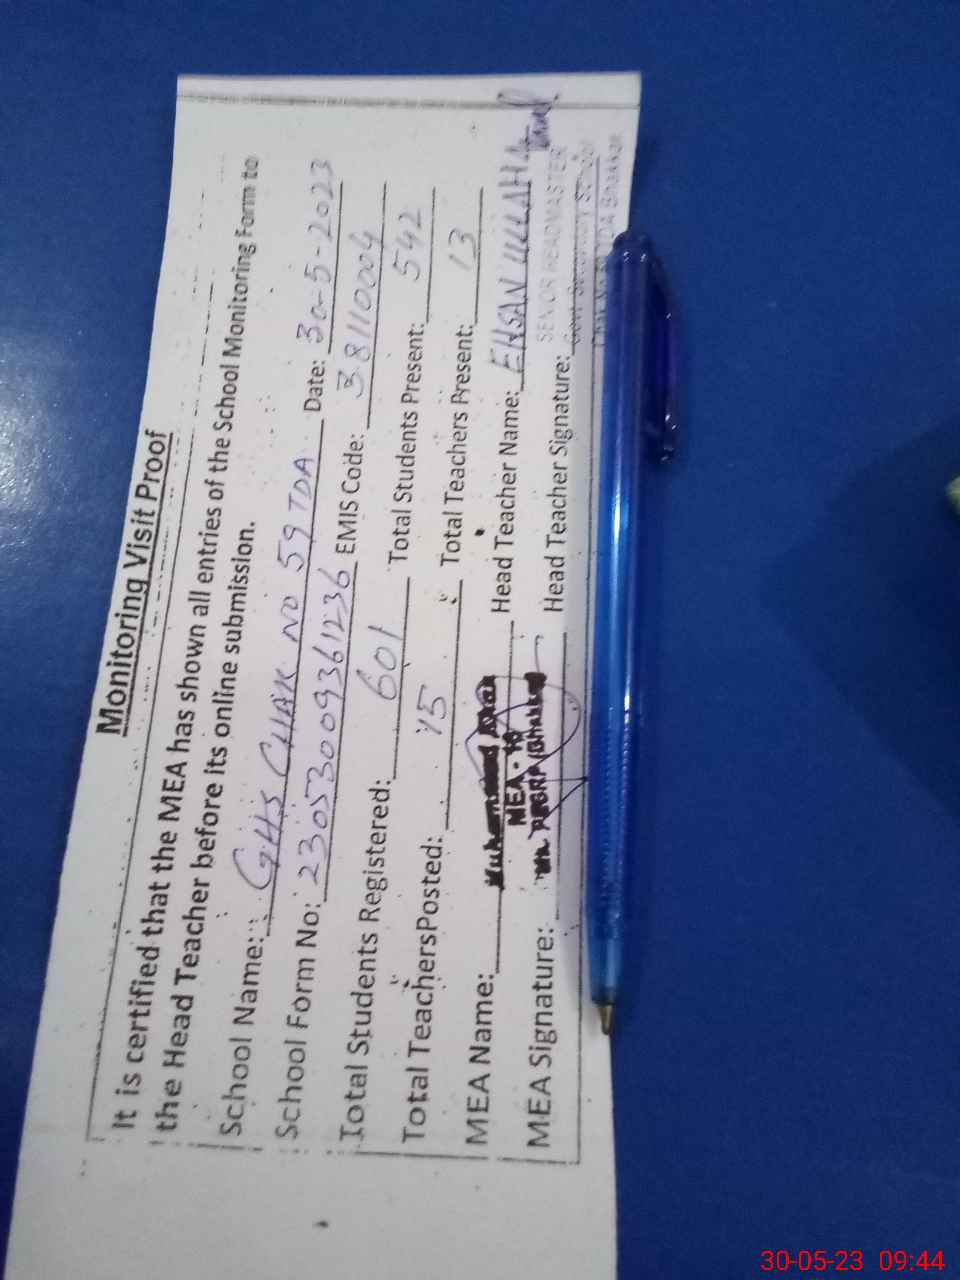 Monitoring Visit Proof
It is certified that the MEA has shown all entries of the School Monitoring Form to
the Head Teacher before its online submission.
School Name: GHS CHAK NO 59 TDA Date: 30-5-2023
School Form No: 230530009361236 EMIS Code: 38110004
Total Students Registered: 601 Total Students Present: 542
Total TeachersPosted: 15 Total Teachers Present: 13
MEA Name: Head Teacher Name: EHSAN ULLAH
MEA - 10
MEA Signature: Head Teacher Signature:
SENIOR HEADMASTER
Govt. Secondary School
TDA Bhakkar
30-05-23 09:44